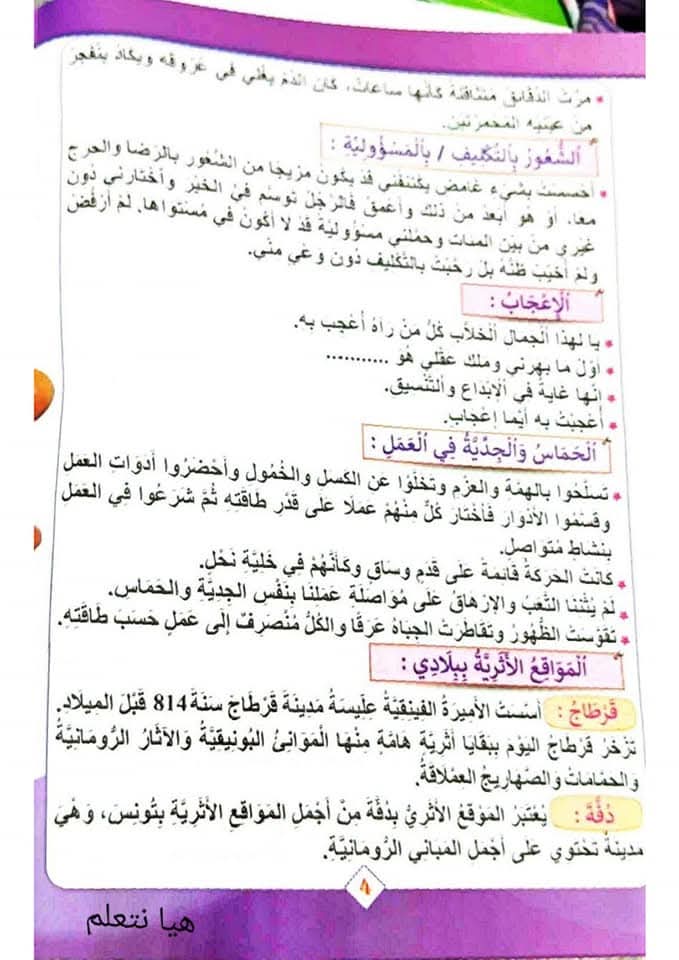 • مَرَّتْ الدَّقَائِقُ مُتَثَاقِلَةً كَأَنَّهَا سَاعَاتٌ، كَانَ الدَّمُ يَغْلِي فِي عُرُوقِهِ وَيَكَادُ يَنْفَجِرُ
مِنْ عَيْنَيْهِ الْمُحْمَرَّتَيْنِ.
اَلشُّعُورُ بِالتَّكْلِيفِ / بِالْمَسْؤُولِيَّةِ :
• أَحْسَسْتُ بِشَيْءٍ غَامِضٍ يَكْتَنِفُنِي قَدْ يَكُونُ مَزِيجًا مِنَ الشُّعُورِ بِالرِّضَا وَالحَرَجِ
مَعًا. أَوْ هُوَ أَبْعَدُ مِنْ ذَلِكَ وَأَعْمَقُ فَالرَّجُلُ تَوَسَّمَ فِيَّ الخَيْرَ وَاخْتَارَنِي دُونَ
غَيْرِي مِنْ بَيْنِ المِئَاتِ وَحَمَّلَنِي مَسْؤُولِيَّةً قَدْ لَا أَكُونُ فِي مُسْتَوَاهَا. لَمْ أَرْفُضْ
وَلَمْ أُخَيِّبْ ظَنَّهُ بَلْ رَحَّبْتُ بِالتَّكْلِيفِ دُونَ وَعْيٍ مِنِّي.
اَلْإِعْجَابُ :
• يَا لِهَذَا الْجَمَالِ الْخَلَّابِ كُلُّ مَنْ رَآهُ أُعْجِبَ بِهِ.
• أَوَّلُ مَا بَهَرَنِي وَمَلَكَ عَقْلِي هُوَ ...........
• إِنَّهَا غَايَةٌ فِي الْإِبْدَاعِ وَالتَّنْسِيقِ.
• أُعْجِبْتُ بِهِ أَيَّمَا إِعْجَابٍ.
اَلْحَمَاسُ وَالْجِدِّيَّةُ فِي الْعَمَلِ :
• تَسَلَّحُوا بِالهِمَّةِ وَالعَزْمِ وَتَخَلَّوْا عَنِ الكَسَلِ وَالخُمُولِ وَأَحْضَرُوا أَدَوَاتِ العَمَلِ
وَقَسَّمُوا الأَدْوَارَ فَاخْتَارَ كُلٌّ مِنْهُمْ عَمَلًا عَلَى قَدْرِ طَاقَتِهِ ثُمَّ شَرَعُوا فِي العَمَلِ
بِنَشَاطٍ مُتَوَاصِلٍ.
• كَانَتْ الحَرَكَةُ قَائِمَةً عَلَى قَدَمٍ وَسَاقٍ وَكَأَنَّهُمْ فِي خَلِيَّةِ نَحْلٍ.
• لَمْ يُثْنِنَا التَّعَبُ وَالإِرْهَاقُ عَلَى مُوَاصَلَةِ عَمَلِنَا بِنَفْسِ الجِدِّيَّةِ وَالحَمَاسِ.
• تَقَوَّسَتْ الظُّهُورُ وَتَقَاطَرَتْ الجِبَاهُ عَرَقًا وَالكُلُّ مُنْصَرِفٌ إِلَى عَمَلٍ حَسَبَ طَاقَتِهِ.
اَلْمَوَاقِعُ الأَثَرِيَّةُ بِبِلَادِي :
قَرْطَاجُ : أَسَّسَتْ الأَمِيرَةُ الفِينِقِيَّةُ عِلِّيسَةُ مَدِينَةَ قَرْطَاجَ سَنَةَ 814 قَبْلَ المِيلَادِ.
تَزْخَرُ قَرْطَاجُ اليَوْمَ بِبَقَايَا أَثَرِيَّةٍ هَامَّةٍ مِنْهَا المَوَانِئُ البُونِيقِيَّةُ وَالآثَارُ الرُّومَانِيَّةُ
وَالحَمَّامَاتُ وَالصَّهَارِيجُ العِمْلَاقَةُ.
دُقَّةُ : يُعْتَبَرُ المَوْقِعُ الأَثَرِيُّ بِدُقَّةَ مِنْ أَجْمَلِ المَوَاقِعِ الأَثَرِيَّةِ بِتُونِسَ، وَهْيَ
مَدِينَةٌ تَحْتَوِي عَلَى أَجْمَلِ المَبَانِي الرُّومَانِيَّةِ.
٨
هيا نتعلم